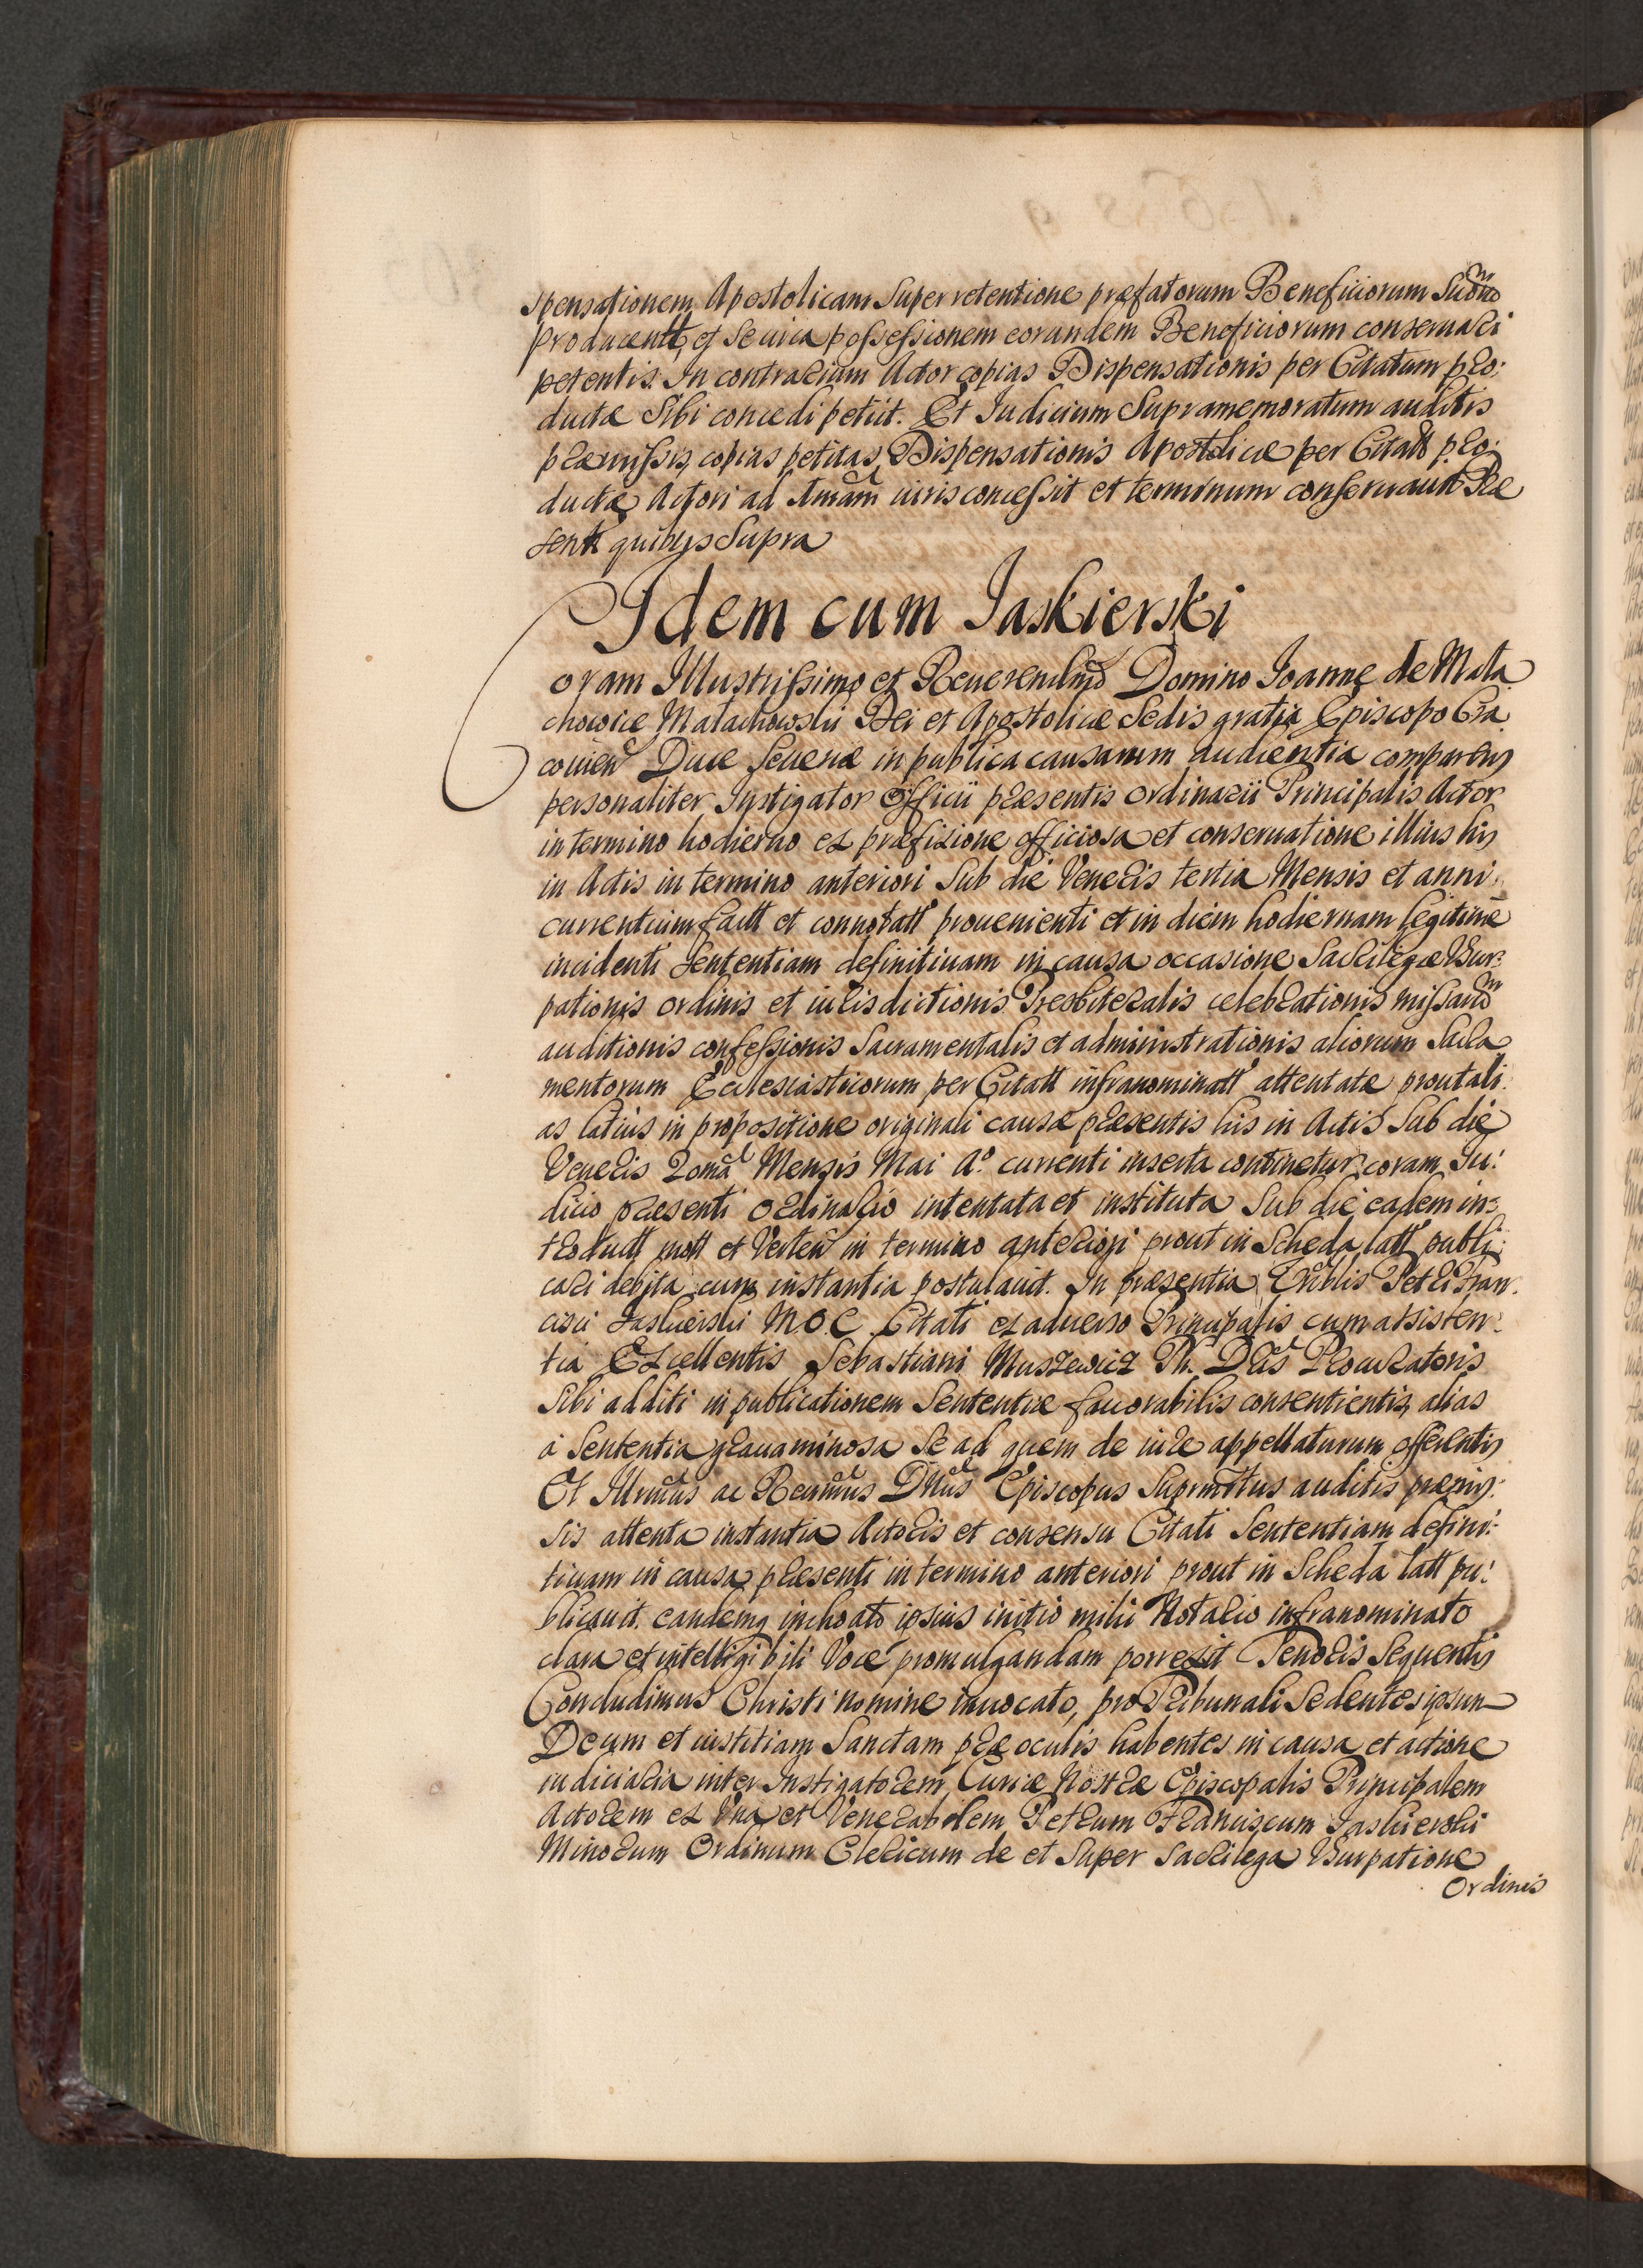 spensationem Apostolicam Super retentione præfatorum Beneficiorum Suorũ
producentt, et Se circa possessionem eorundem Beneficiorum conseruari
petentis. In contrarium Actor copias Dispensationis per Citatum pro:
ductæ Sibi concedi petiit. Et Iudicium Supramemoratum auditis
præmissis, copias petitas Dispensationis Apostolicæ per Citatt pro:
ductæ Actori ad iuris concessit et terminum conseruauit Præ
sentt quibus Supra
Idem cum Jaskierski
oram Illustrissimo et Reuerendmõ Domino Joanne de Mala
chowice Malachowski Dei et Apostolicæ Sedis gratia Episcopo Cra
couien Duce Seueriæ in publica causarum audientia comparens
personaliter Instigator Officii præsentis ordinarii Principalis Actor
in termino hodierno ex præfixione officiosa et conseruatione illius his
in Actis in termino anteriori Sub die Veneris tertia Mensis et anni
currentium factt et connotatt prouenienti et in diem hodiernam legitime
incidenti Sententiam definitiuam in causa occasione Sacrilegæ Vsur:
pationis ordinis et iurisdictionis Presbiteralis celebrationis missarũ
auditionis confessionis Sacramentalis et administrationis aliorum Sacra
mentorum Ecclesiasticorum per Citatt infranominatt attentatæ prout ali
as latius in propositione originali causæ præsentis his in Actis Sub die
Veneris Mensis Mai Aº currenti inserta continetur coram Iu:
dicio præsenti ordinario intentata et instituta Sub die eadem in:
troductt mott et Verten in termino anteriori prout in Scheda latt publi:
cari debita cum instantia postulauit. In præsentia Petri Fran:
cisci Jaskierski M.O.C Citati ex aduerso Principalis cum assisten:
tia Excellentis Sebastiani Muszewicz Ph. Dris Procuratoris
Sibi additi in publicationem Sententiæ fauorabilis consentientis, alias
a Sententia grauaminosa Se ad quem de iure appellaturum offerentis
Et Illrmus ac Reurmus Dñus Episcopus Suprmttus auditis præmis:
sis attenta instantia Actoris et consensu Citati Sententiam defini:
tiuam in causa præsenti in termino anteriori prout in Scheda latt pu:
blicauit. eandemq inchoato ipsius initio mihi Notario infranominato
clara et intelligibili Voce promulgandam porrexit Tenoris Sequentis
Concludimus Christi nomine inuocato, pro Tribunali Sedentes ipsum
Deum et iustitiam Sanctam præ oculis habentes in causa et actione
iudiciaria inter Instigatorem Curiæ Nostræ Episcopalis Principalem
Actorem ex Vna et Venerabilem Petrum Franciscum Jaskierski
Minorum Ordinum Clericum de et Super Sacrilega Vsurpatione
Ordinis